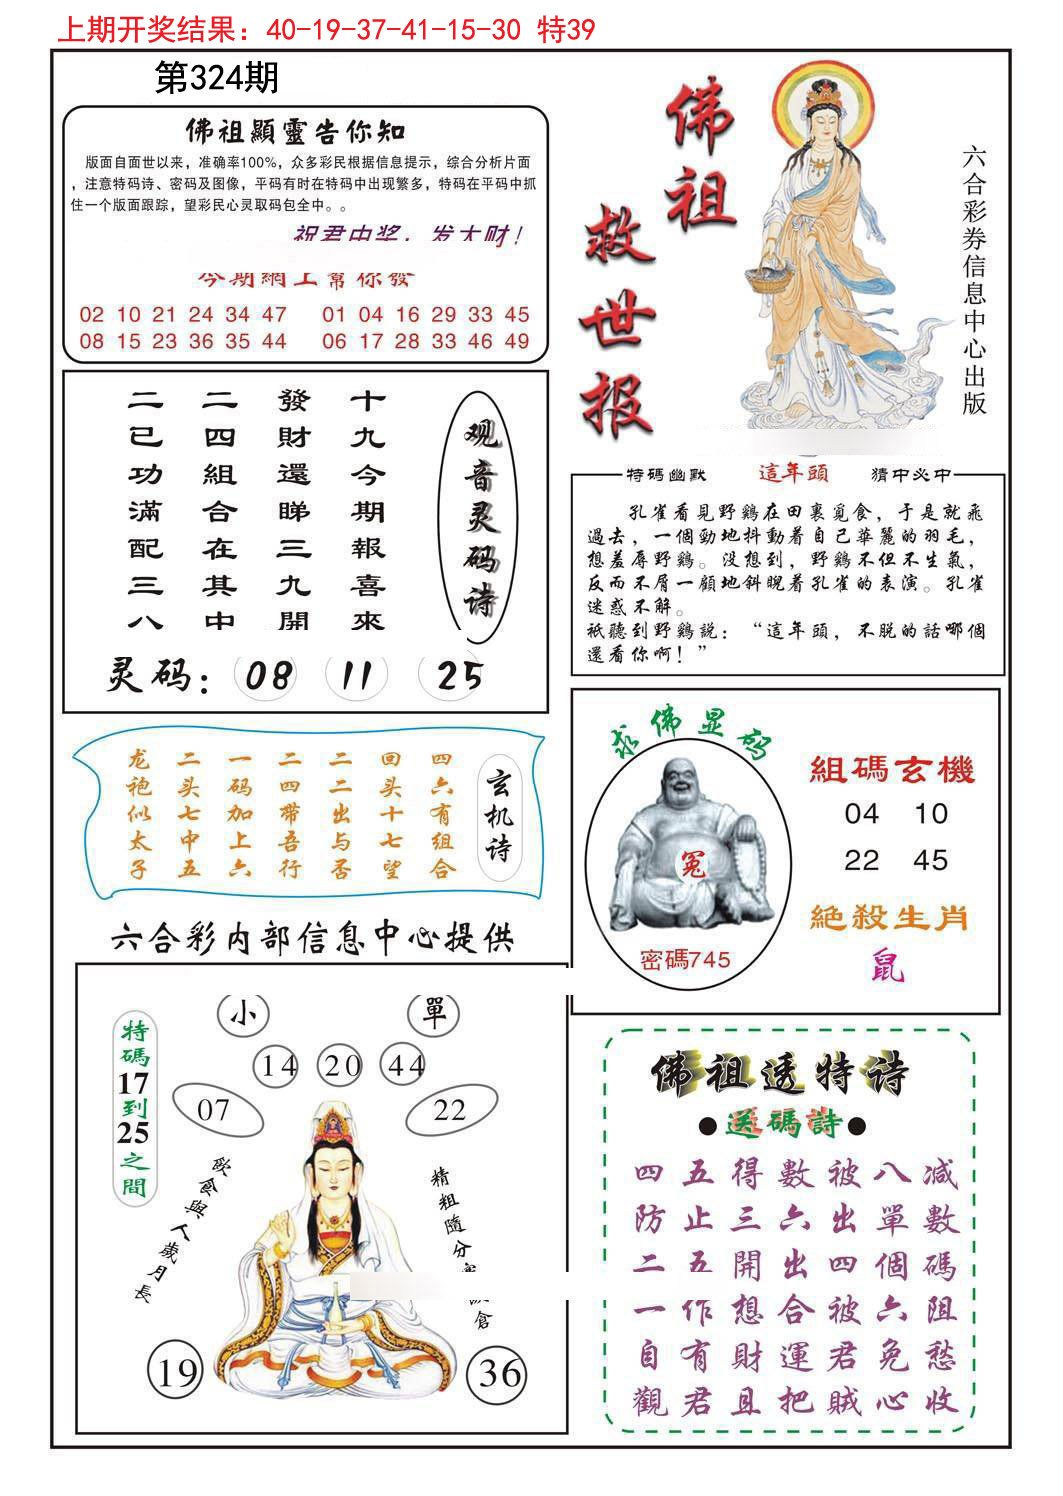 上期开奖结果：40-19-37-41-15-30 特39
第324期
佛祖顯靈告你知
版面自面世以来，准确率100%，众多彩民根据信息提示，综合分析片面
，注意特码诗、密码及图像，平码有时在特码中出现繁多，特码在平码中抓
住一个版面跟踪，望彩民心灵取码包全中。。
祝君中奖，发大财！
今期網上幫你發
02 10 21 24 34 47 01 04 16 29 33 45
08 15 23 36 35 44 06 17 28 33 46 49
佛祖
救世报
六合彩券信息中心出版
观音灵码诗
十九今期報喜來
發財還睇三九開
二四組合在其中
二已功滿配三八
灵码：08 11 25
特碼幽默 這年頭 猜中必中
孔雀看見野鷄在田裏覓食，于是就飛
過去，一個勁地抖動着自己華麗的羽毛，
想羞辱野鷄。没想到，野鷄不但不生氣，
反而不屑一顧地斜睨着孔雀的表演。孔雀
迷惑不解。
衹聽到野鷄說：“這年頭，不脱的話哪個
還看你啊！”
玄机诗
四六有组合
回头十七望
二二出与否
二四带吾行
一码加上六
二头七中五
龙袍似太子
求佛显码
冤
密碼745
組碼玄機
04 10
22 45
絕殺生肖
鼠
六合彩内部信息中心提供
特碼17到25之間
小 單
14 20 44
07 22
飲食與人歲月長
精粗隨分
倉
19 36
佛祖透特诗
●送碼詩●
四五得數被八減
防止三六出單數
二五開出四個碼
一作想合被六阻
自有財運君免愁
觀君且把賊心收